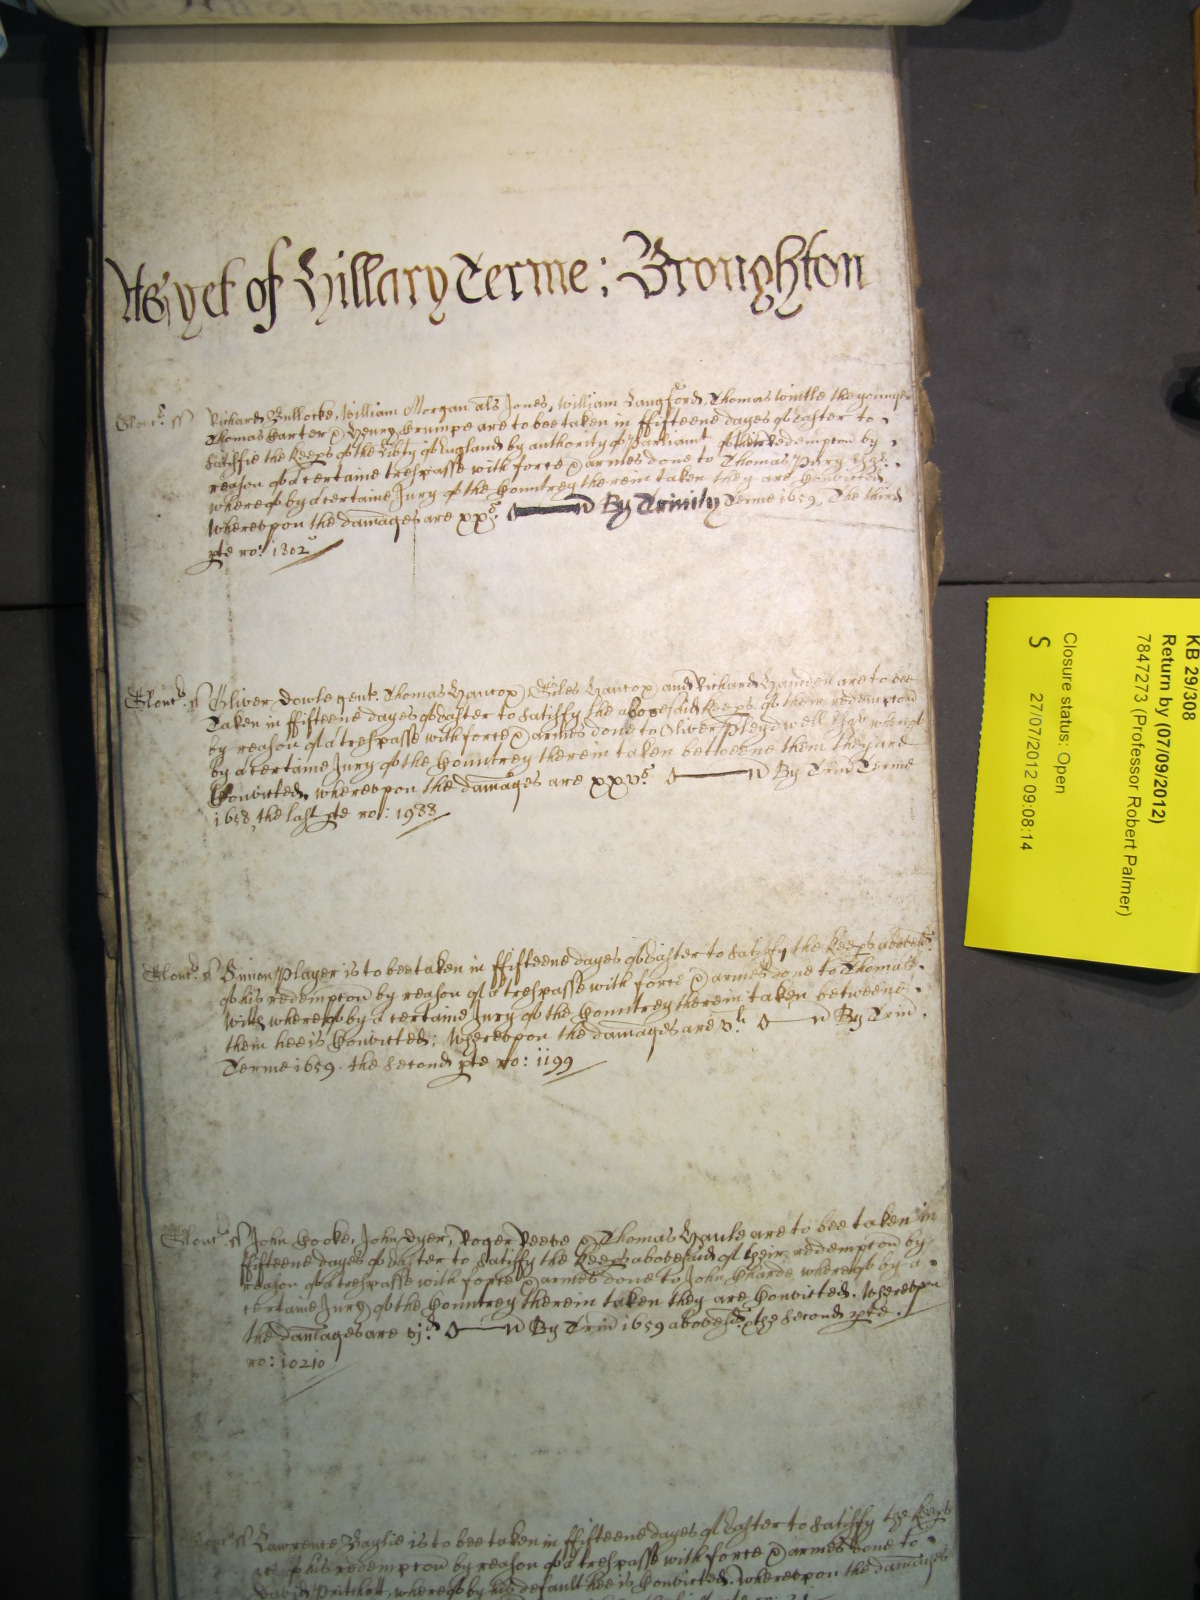 As yet of Hillary Terme: Broughton
Glouc. ss Richard Bullocke, William Morgan als Jones, William Langford, Thomas Wintle the younger
Thomas Carter & Henry Crumpe are to bee taken in ffifteene dayes of Easter to
satisfie the Keeps of the Libty of England by authority of Parliamt of their redempcon by
reason of a certaine trespasse with force & armes done to Thomas Pury Esqr.
whereof by a certaine Jury of the Countrey therein taken they are Convicted
whereupon the damages are xxs. By Trinity Terme 1659. The third
pte ro: 1802
Glouc. ss Oliver Dowle gent. Thomas Hancox, Giles Hancox, and Richard are to bee
Taken in ffifteene dayes of Easter to satisfy the abovesaid Keeps. of their redempcon
by reason of a trespasse with force & armes done to Oliver Pleydwell Esqr whereof
by a certaine Jury of the Countrey therein taken betweene them they are
Convicted, whereupon the damages are xxvs. By Trin Terme
1658, the last pte ro: 1988
Glouc. ss Simon Player is to bee taken in ffifteene dayes of Easter to satisfy the Keeps abovesd.
of his redempcon by reason of a trespasse with force & armes done to Thomas
whereof by a certaine Jury of the Countrey therein taken betweene
them hee is Convicted: Whereupon the damages are vli. By Trin
Terme 1659. the second pte ro: 1199
Glouc. ss John Cooke, John Dyer, Roger Reeve & Thomas are to bee taken in
ffifteene dayes of Easter to satisfy the Keeps abovesaid of their redempcon by
reason of a trespasse with force & armes done to John whereof by a
certaine Jury of the Countrey therein taken they are Convicted. Whereupon
the damages are vjd. By Trin 1659 abovesd. the second pte.
ro: 10210
ss Lawrence Baylie is to bee taken in ffifteene dayes of Easter to satisfy the Keeps
of his redempcon by reason of a trespasse with force & armes done to
David Pritchett, whereof by his default hee is Convicted. whereupon the damages
KB 29/308
Return by (07/09/2012)
7847273 (Professor Robert Palmer)
Closure status: Open
S 27/07/2012 09:08:14